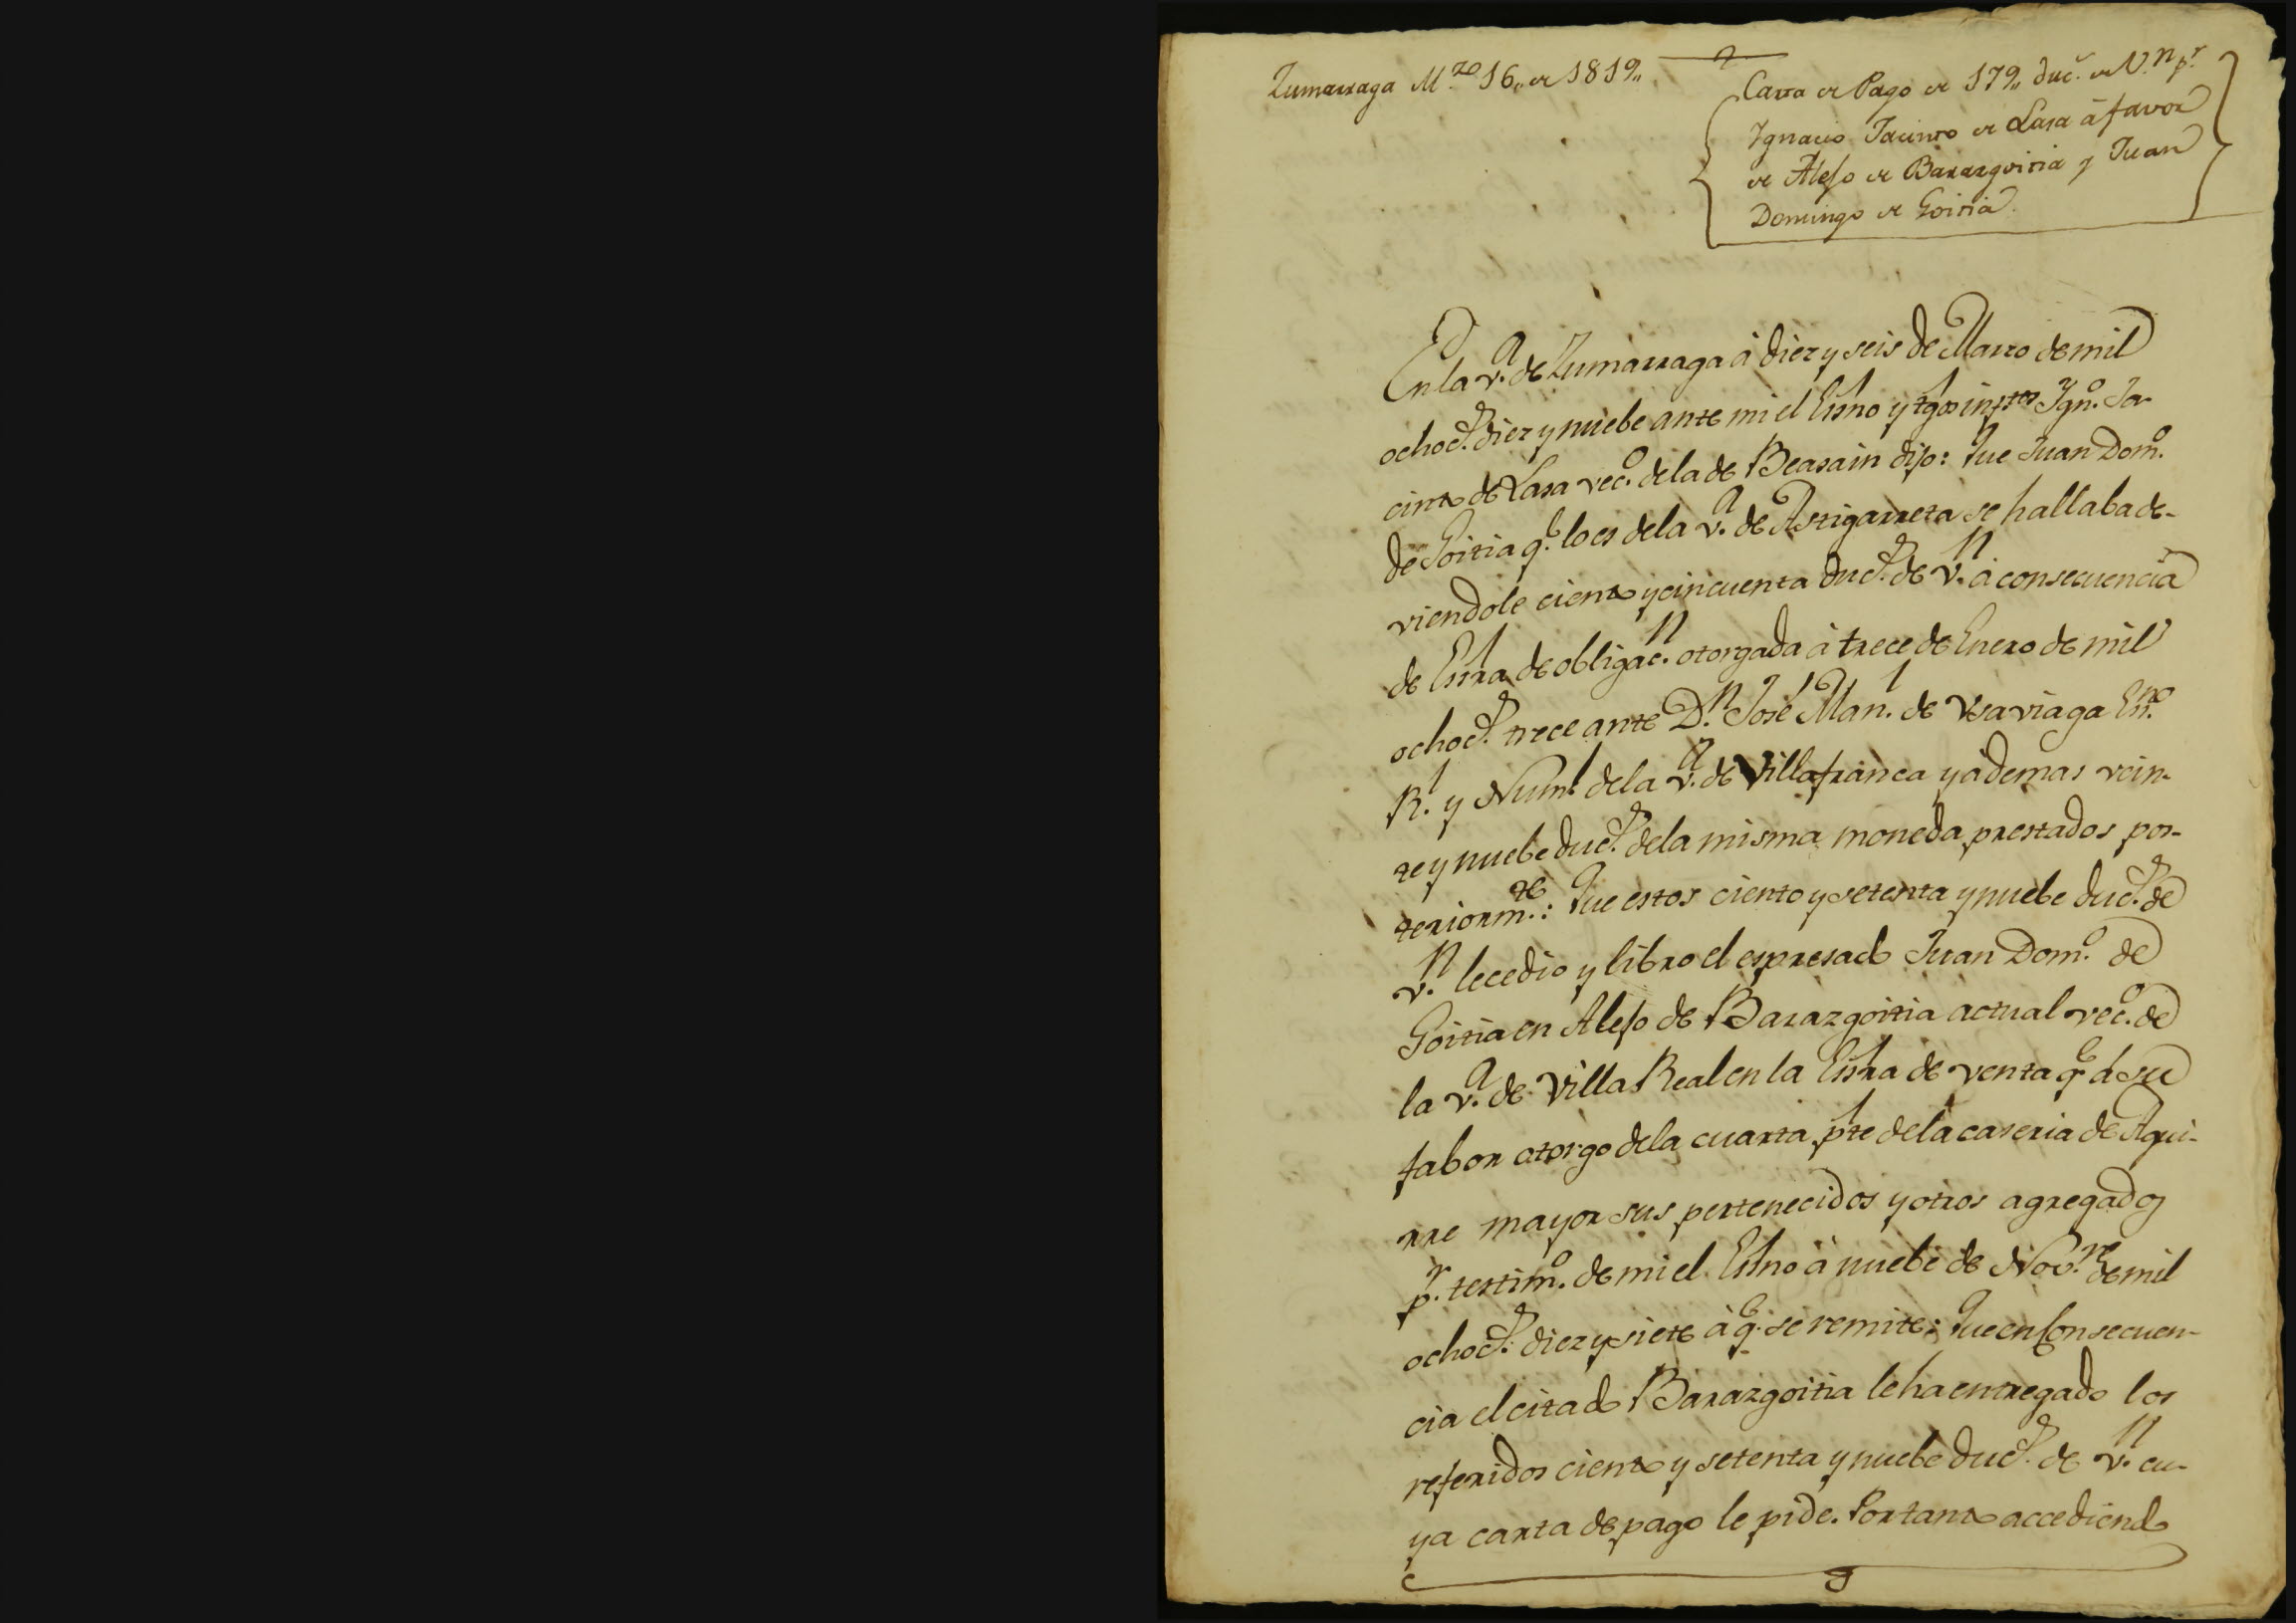 Zumarraga M.zo 16,, de 1819,,
Carta de Pago de 179,, duc.s de V.n p.r
Ygnacio Jacinto de Lasa á favor
de Alejo de Barazgoitia y Juan
Domingo de Goitia.
En la v.a de Zumarraga à diez y seis de Marzo de mil
ochoc.s diez y nuebe ante mi el Esno y tgos inftos Ygn.o Ja-
cinto de Lasa vec.o dela de Beasain dijo: Que Juan Dom.o
de Goitia q.e lo es dela v.a de Astigarreta se hallaba de-
viendole ciento y cincuenta duc.s de v.n à consecuencia
de Esra de obligac.n otorgada à trece de Enero de mil
ochoc.s trece ante D.n José Man.l de Usaviaga Esno
R.l y Num.l dela v.a de Villafranca y àdemas vein-
te y nuebe duc.s dela misma moneda prestados pos-
teriorm.te: Que estos ciento y setenta y nuebe duc.s de
v.n le cedio y libro el espresado Juan Dom.o de
Goitia en Alejo de Barazgoitia actual vec.o de
la v.a de Villa Real en la Esra de venta q.e à su
fabor otorgo dela cuarta pte dela caseria de Agui-
rre mayor sus pertenecidos y otros agregados
p.r testim.o de mi el Esno à nuebe de Nov.re de mil
ochoc.s diez y siete à q.e se remite: Que en Consecuen-
cia el citado Barazgoitia le ha entregado los
referidos ciento y setenta y nuebe duc.s de v.n cu-
ya carta de pago le pide. Por tanto accediendo